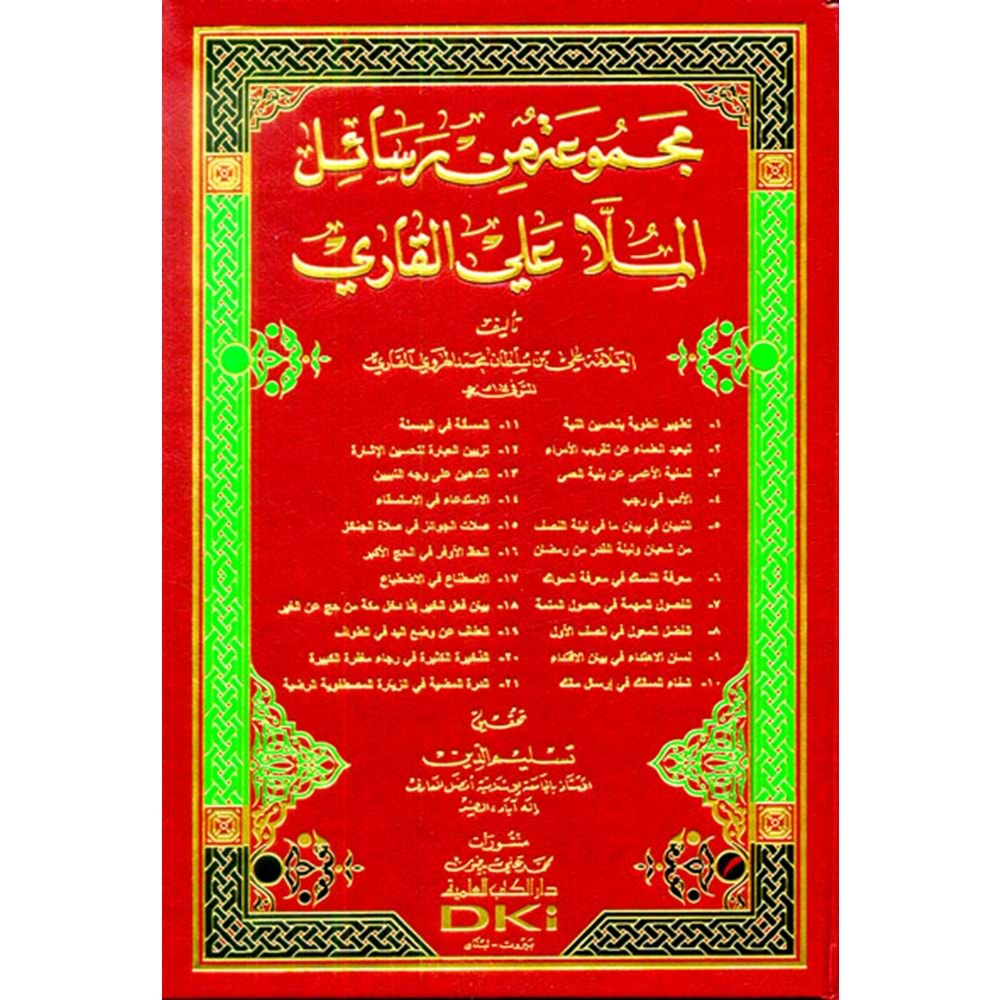 مجموعة من رسائل
الملا علي القاري
تأليف
العلامة علي بن سلطان محمد الهروي القاري
المتوفى ١٠١٤هـ
١- تطهير الطوية بتحسين النية
٢- تبعيد العلماء عن تقريب الأمراء
٣- تسلية الأعمى عن بلية العمى
٤- الأدب في رجب
٥- التبيان في بيان ما في ليلة النصف
من شعبان وليلة القدر من رمضان
٦- معرفة النساك في معرفة السواك
٧- الفصول المهمة في حصول المتمة
٨- الفضل المعول في الصف الأول
٩- لسان الاهتداء في بيان الاقتداء
١٠- شفاء السالك في إرسال مالك
١١- المسألة في البسملة
١٢- تزيين العبارة لتحسين الإشارة
١٣- التدهين على وجه التبيين
١٤- الاستدعاء في الاستسقاء
١٥- صلات الجوائز في صلاة الجنائز
١٦- الحظ الأوفر في الحج الأكبر
١٧- الاصطناع في الاضطباع
١٨- بيان فعل الخير إذا دخل مكة من حج عن الغير
١٩- الطائف عن وضع اليد في الطواف
٢٠- الذخيرة الكثيرة في رجاء مغفرة الكبيرة
٢١- الدرة المضية في الزيارة المصطفوية الرضية
تحقيق
تسليم الدين
منشورات
محمد علي بيضون
دار الكتب العلمية
DKi
بيروت - لبنان